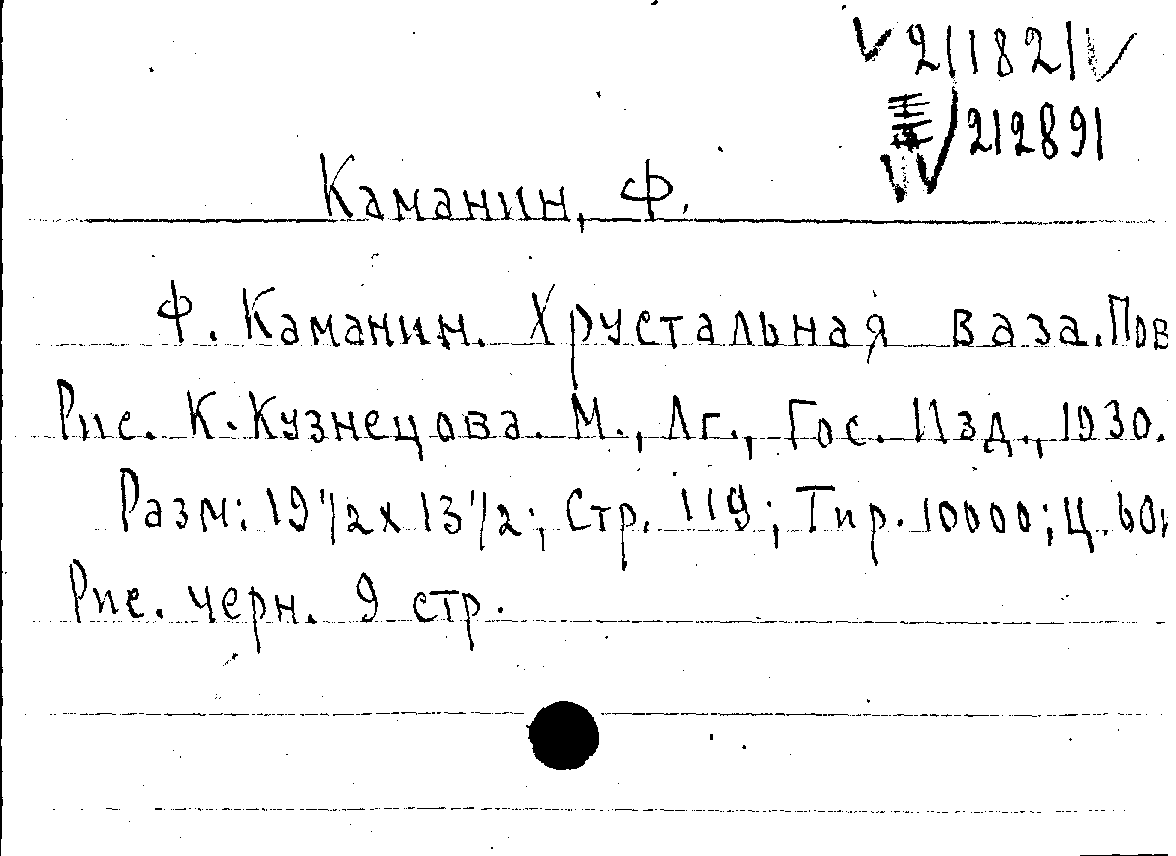 211821
212891
Каманин, Ф.
Ф. Каманин. Хрустальная ваза. Пов
Рис. К. Кузнецова. М., Лг., Гос. Изд., 1930.
Разм: 19 1/2 x 13 1/2; Стр. 119; Тир. 10000; Ц. 60к
Рис. черн. 9 стр.